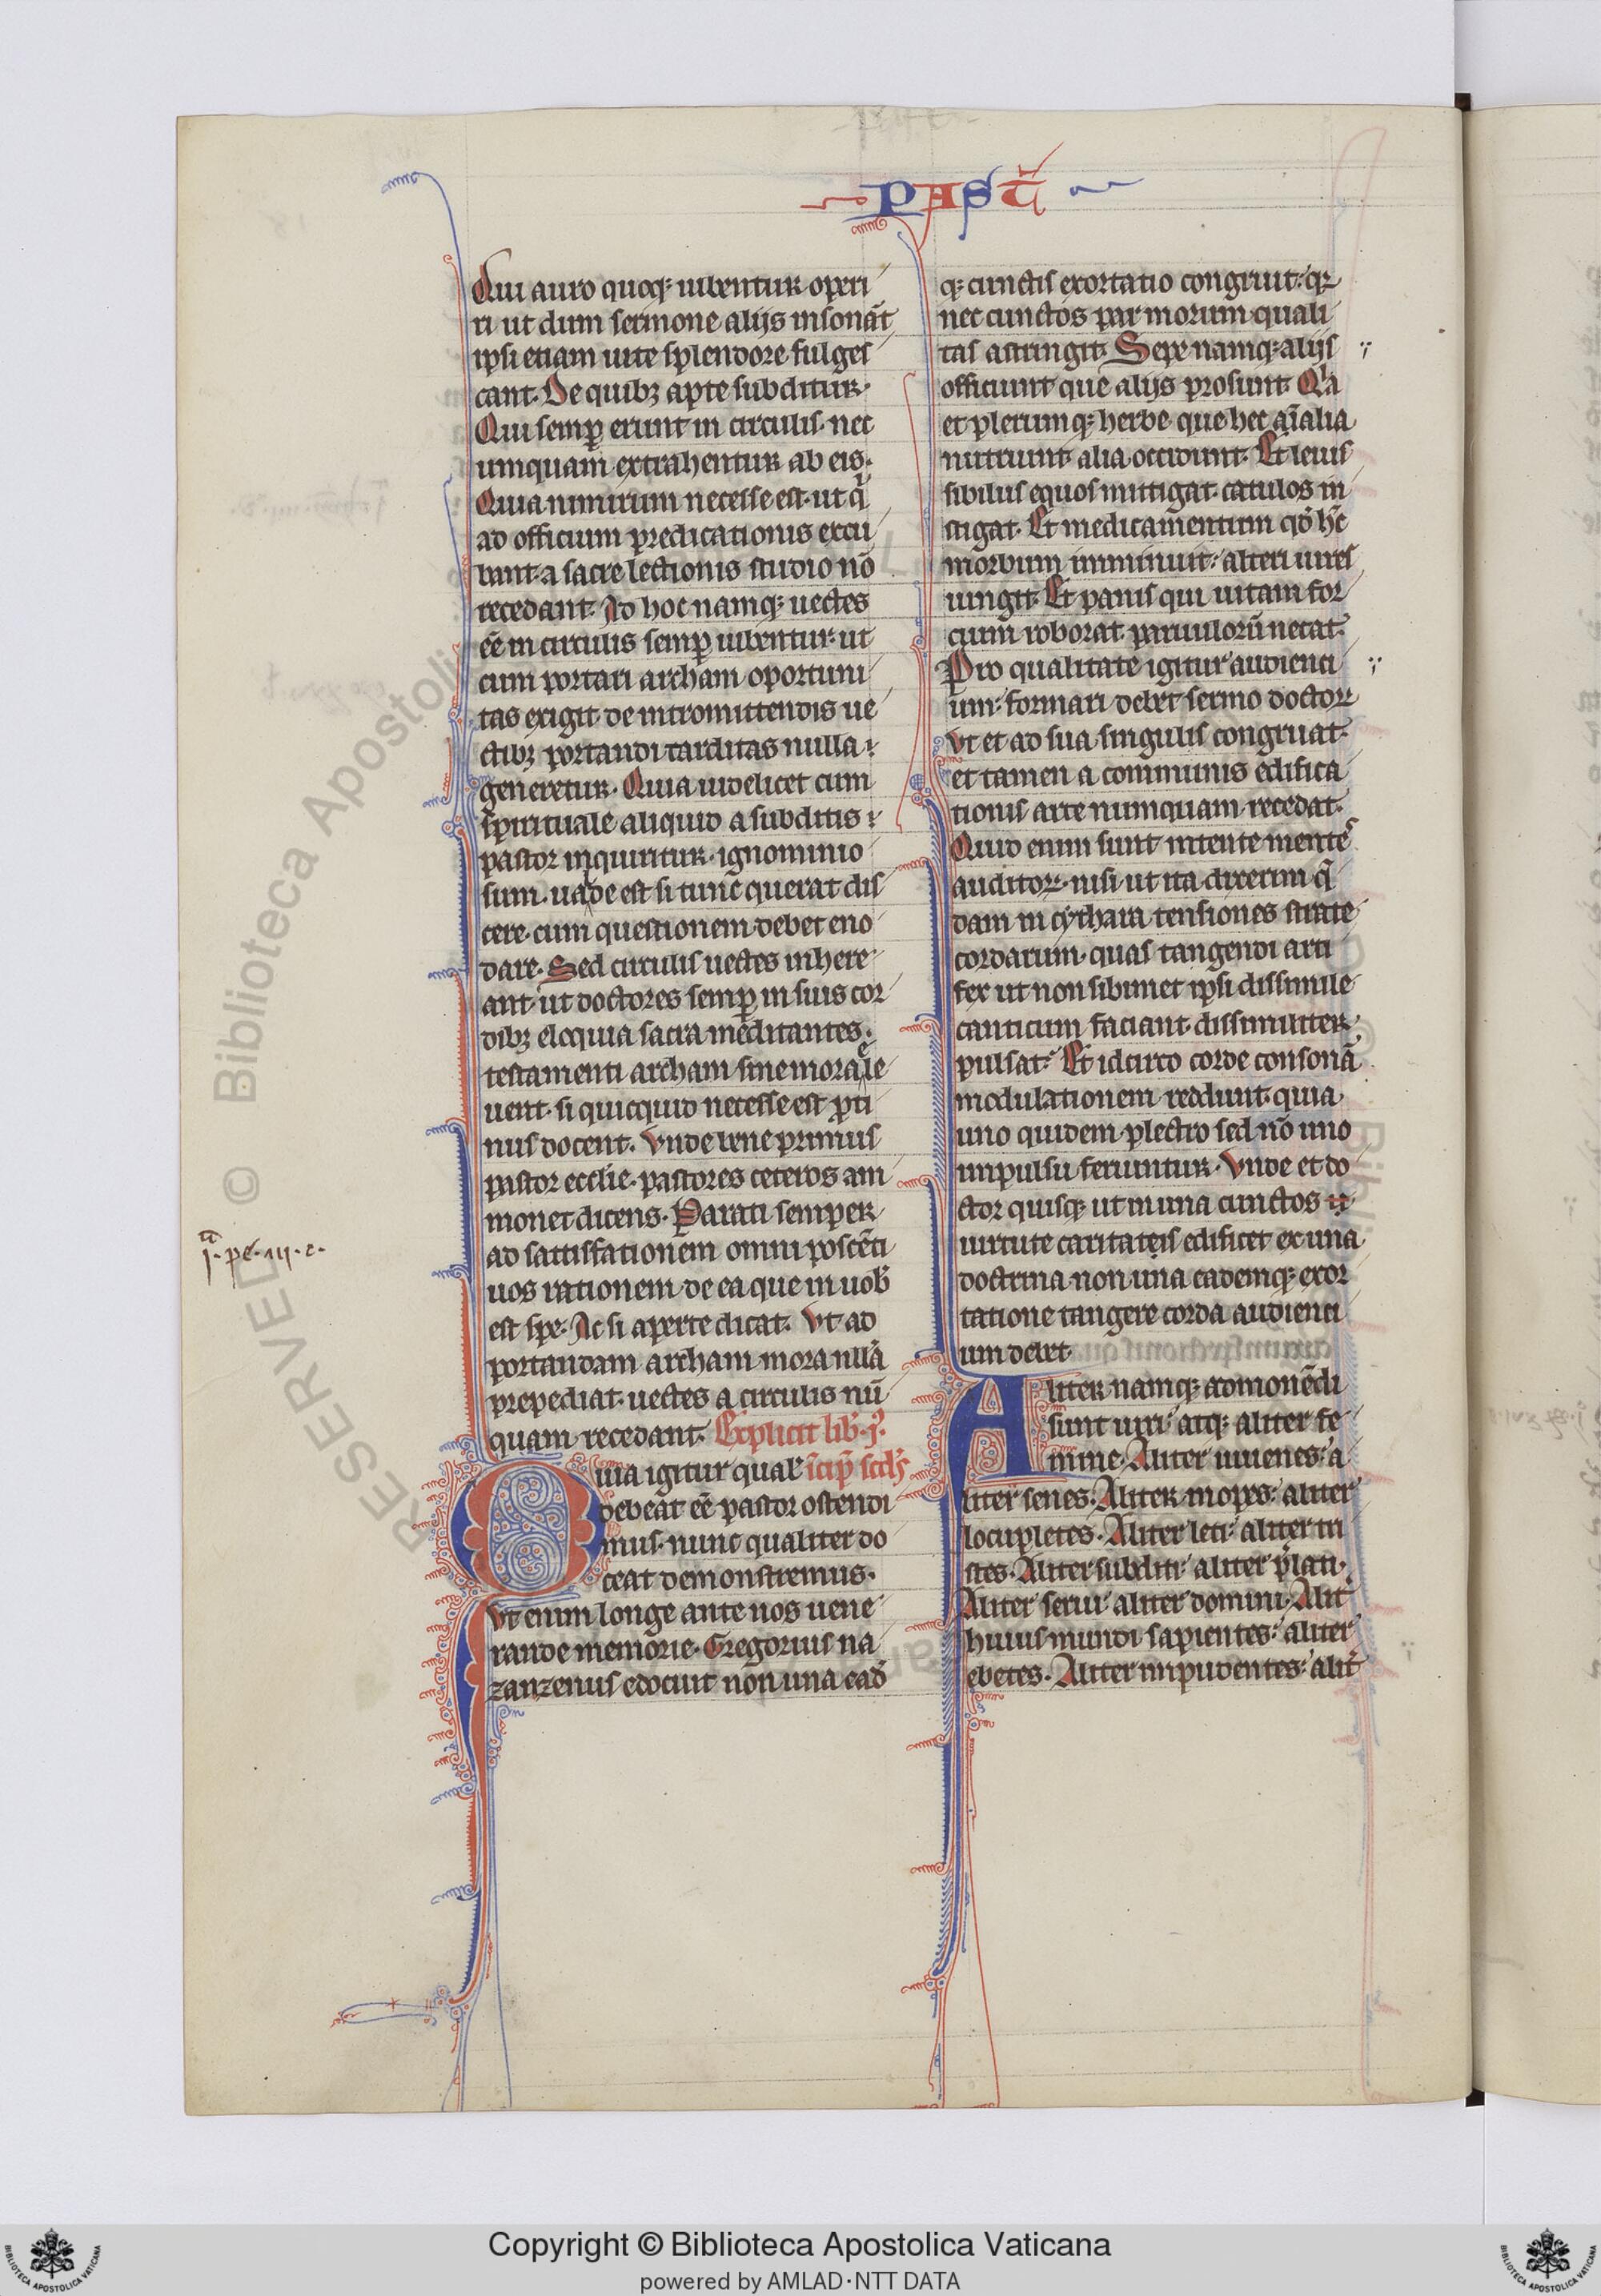 PASꞆ̃
Qui auro quoq; iubentur operi
ri ut dum sermone alijs insonãt
ipsi etiam uite splendore fulges
cant. De quibꝫ apte subditur.
Qui semꝑ erunt in circulis. nec
umquam extrahentur ab eis.
Quia nimirum necesse est. ut q̃
ad officium predicationis excu
bant. a sacre lectionis studio nõ
recedant. Ad hoc namq; uectes
eẽ in circulis semꝑ iubentur. ut
cum portari archam oportuni
tas exigit. de intromittendis ue
ctibꝫ portandi tarditas nulla
generetur. Quia uidelicet cum
spirituale aliquid a subditis
pastor inquiritur. ignominio
sum. uade est si tunc querat dis
cere. cum questionem debet eno
dare. Sed circulis uectes inhere
ant ut doctores semꝑ in suis cor
dibꝫ eloquia sacra meditantes.
testamenti archam sine mora ele
uent. si quicquid necesse est ꝓti
nus docent. Vnde bene primus
pastor ecclie. pastores ceteros am
monet dicens. Parati semper
ad sattisfationem omni poscẽti
uos rationem de ea que in uob̾
est spe. Ac si aperte dicat. Vt ad
portandam archam mora nllã
prepediat. uectes a circulis nũ
quam recedant. Explicit lib̾. j᷒.
Quia igitur qual̾ īcip̃ scd̾s
debeat eẽ pastor ostendi
mus. nunc qualiter do
ceat demonstremus.
Vt enim longe ante nos uene
rande memorie. Gregorius na
zanzenus edocuit non una ead̾
j᷒. pe͂. iij. c.
q; cunctis exortatio congruit. qꝛ
nec cunctos par morum quali
tas astringit. Sepe namq; alijs
officiunt que alijs prosunt. Qa
et plerumq; herbe que hec aĩalia
nutriunt. alia occidunt. Et leuis
sibilus equos mittigat. catulos in
stigat. Et medicamentum qd̾ hc̃
morbum imminuit. alteri uires
iungit. Et panis qui uitam for
cium roborat. paruulorũ necat.
Pro qualitate igitur audienci
um. formari debet sermo doctoꝝ
Vt et ad sua singulis congruat.
et tamen a communis edifica
tionis arte numquam recedat.
Quid enim sunt intente mentes
auditoꝝ. nisi ut ita dixerim q̃
dam in cythara tensiones strate
cordarum. quas tangendi arti
fex ut non sibimet ipsi dissimile
canticum faciant dissimiliter
pulsat. Et idcirco corde consonã
modulationem reddunt. quia
uno quidem plectro sed nõ uno
impulsu feriuntur. Vnde et do
ctor quisq; ut in una cunctos
uirtute caritateis edificet ex una
doctrina non una eademq; exor
tatione tangere corda audienci
um debet.
Aliter namq; admonẽdi
sunt uiri. atq; aliter fe
mine. Aliter iuuenes. a
liter senes. Aliter inopes. aliter
locupletes. Aliter leti. aliter tri
stes. Aliter subditi. aliter p̃lati.
Aliter serui aliter domini. Alit̾
huius mundi sapientes. aliter
ebetes. Aliter inpudentes. alit̾
RESERVED © Biblioteca Apostolica
Copyright © Biblioteca Apostolica Vaticana
powered by AMLAD·NTT DATA
BIBLIOTECA APOSTOLICA VATICANA
BIBLIOTECA APOSTOLICA VATICANA